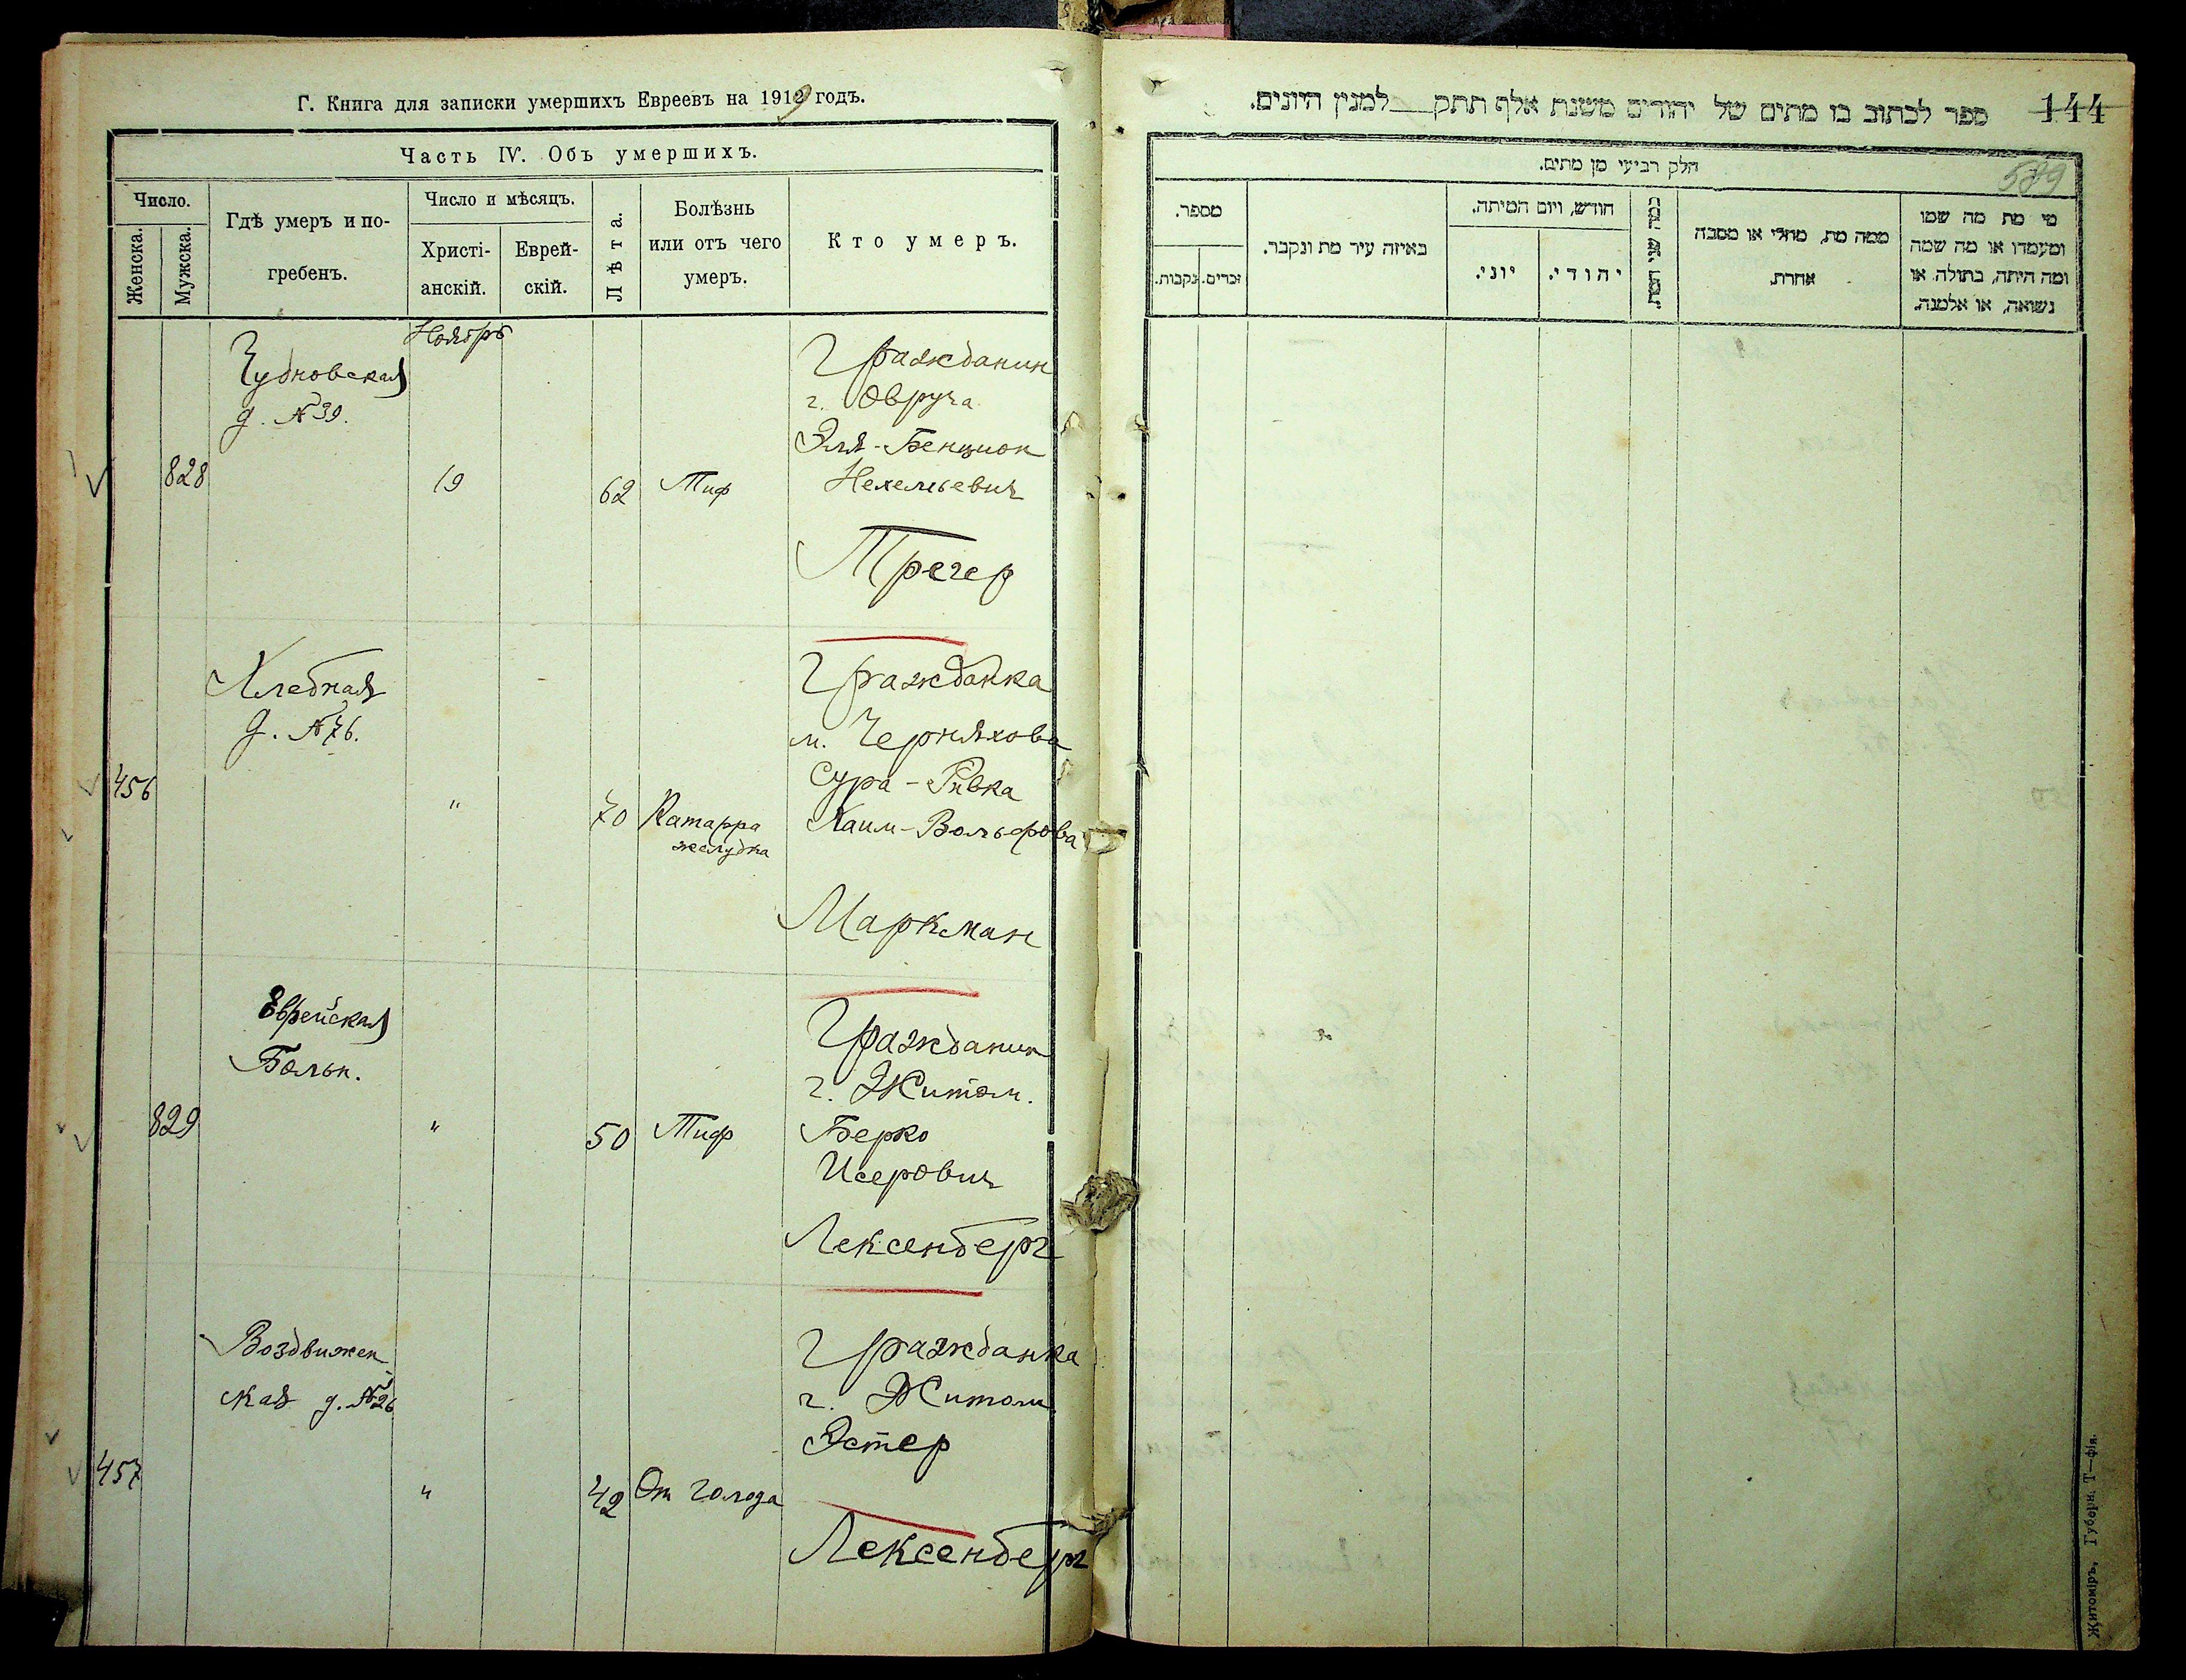 Г. Книга для записки умершихъ Евреевъ на 1919 годъ.
Часть IV. Объ умершихъ.
Число.
Женска.
Мужска.
Гдѣ умеръ и по-
гребенъ.
Число и мѣсяцъ.
Христі-
анскій.
Еврей-
скій.
Лѣта.
Болѣзнь
или отъ чего
умеръ.
Кто умеръ.
Ноябрь
828
Чудновская
д. №39.
19
62
Тиф
Гражданин
г. Овруча
Эля-Бенцион
Трегер
456
Хлебная
д. №76.
"
70
Катарра
желудка
Гражданка
м. Черняхова
Сура-Ривка
Хаим-Вольфова
Маркман
829
Еврейская
Больн.
"
50
Тиф
Гражданин
г. Житом.
Берко
Исерович
Лексенберг
457
Воздвижен
ская д. №26
"
42
От голода
Гражданка
г. Житом.
Эстер
Лексенберг
144
ספר לכתוב בו מתים של יהודים משנת אלף תתק למנין היונים.
589
חלק רביעי מן מתים.
מספר.
זכרים.
נקבות.
באיזה עיר מת ונקבר.
חודש, ויום המיתה.
יוני.
יהודי.
כמה שני המת.
ממה מת, מחלי או מסבה
אחרת.
מי מת מה שמו
ומעמדו או מה שמה
ומה היתה, בתולה או
נשואה, או אלמנה.
Житоміръ, Губерн. Т—фія.